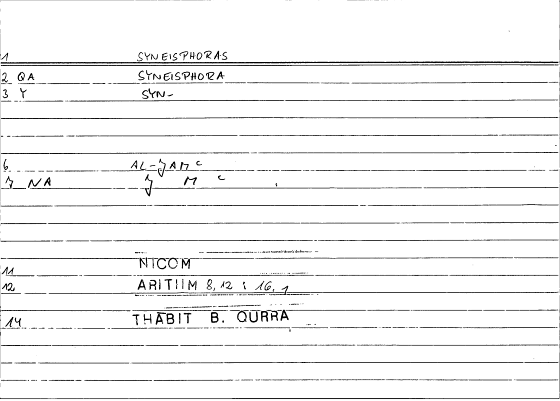 1 SYNEISPHORAS
2 QA SYNEISPHORA
3 Y SYN-
6 AL-JAM c
7 NA J M c
11 NICOM
12 ARITIIM 8, 12 : 16, 1
14 THABIT B. QURRA